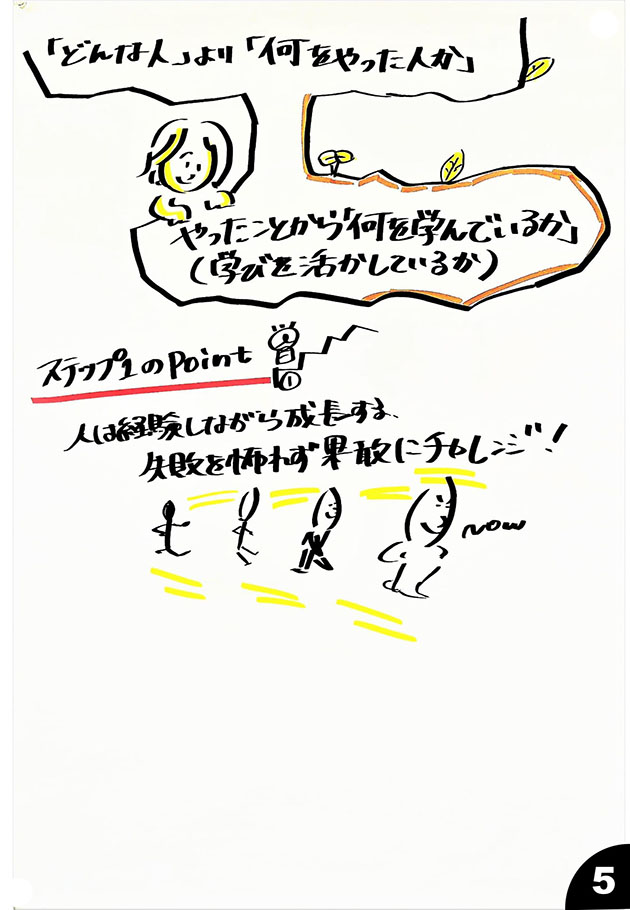 「どんな人」より「何をやった人か」
やったことから「何を学んでいるか」
(学びを活かしているか)
ステップ1のPoint
1
人は経験しながら成長する、
失敗を怖れず果敢にチャレンジ!
NOW
5